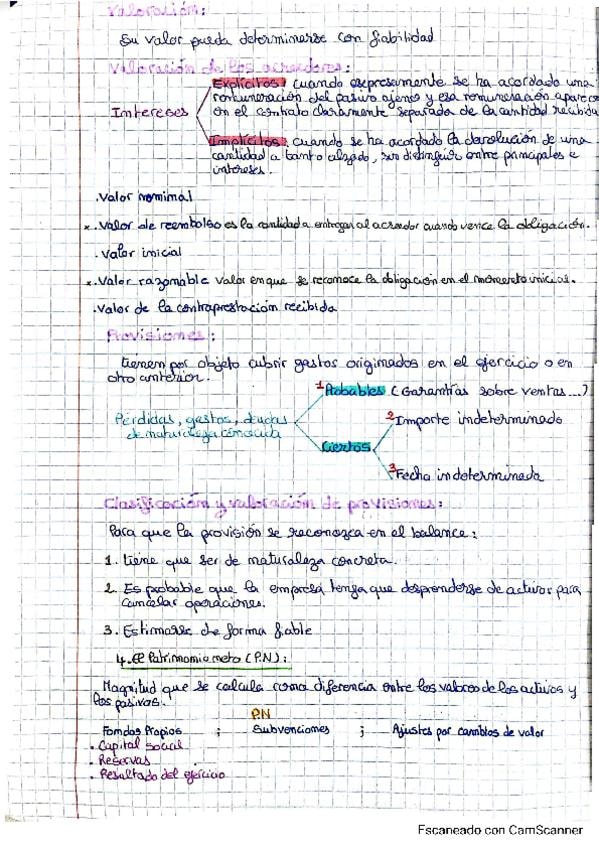 Valoración:
Su valor pueda determinarse con fiabilidad
Valoración de los acreedores:
Intereses
Explícitos: cuando expresamente se ha acordado una
remuneración del pasivo ajeno y esa remuneración aparece
en el contrato claramente separada de la cantidad recibida
Implícitos: cuando se ha acordado la devolución de una
cantidad a tanto alzado, sin distinguir entre principales e
intereses.
. Valor nominal
x. Valor de reembolso es la cantidad a entregar al acreedor cuando vence la obligación.
. Valor inicial
x. Valor razonable valor en que se reconoce la obligación en el momento inicial.
. Valor de la contraprestación recibida
Provisiones:
tienen por objeto cubrir gastos originados en el ejercicio o en
otro anterior.
Pérdidas, gastos, deudas
de naturaleza conocida
1 Probables (Garantías sobre ventas...)
Ciertos
2 Importe indeterminado
3 Fecha indeterminada
Clasificación y valoración de provisiones:
Para que la provisión se reconozca en el balance:
1. tiene que ser de naturaleza concreta.
2. Es probable que la empresa tenga que desprenderse de activos para
cancelar operaciones.
3. Estimarse de forma fiable
4. El Patrimonio neto (P.N):
Magnitud que se calcula como diferencia entre los valores de los activos y
los pasivos.
PN
Fondos Propios ; Subvenciones ; Ajustes por cambios de valor
. Capital social
. Reservas
. Resultado del ejercicio
Escaneado con CamScanner